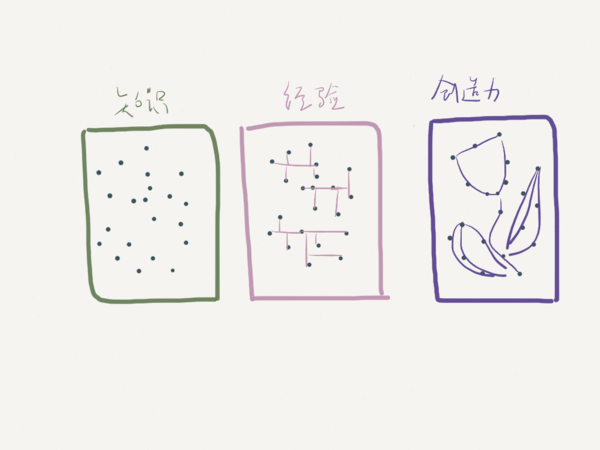 知识
经验
创造力